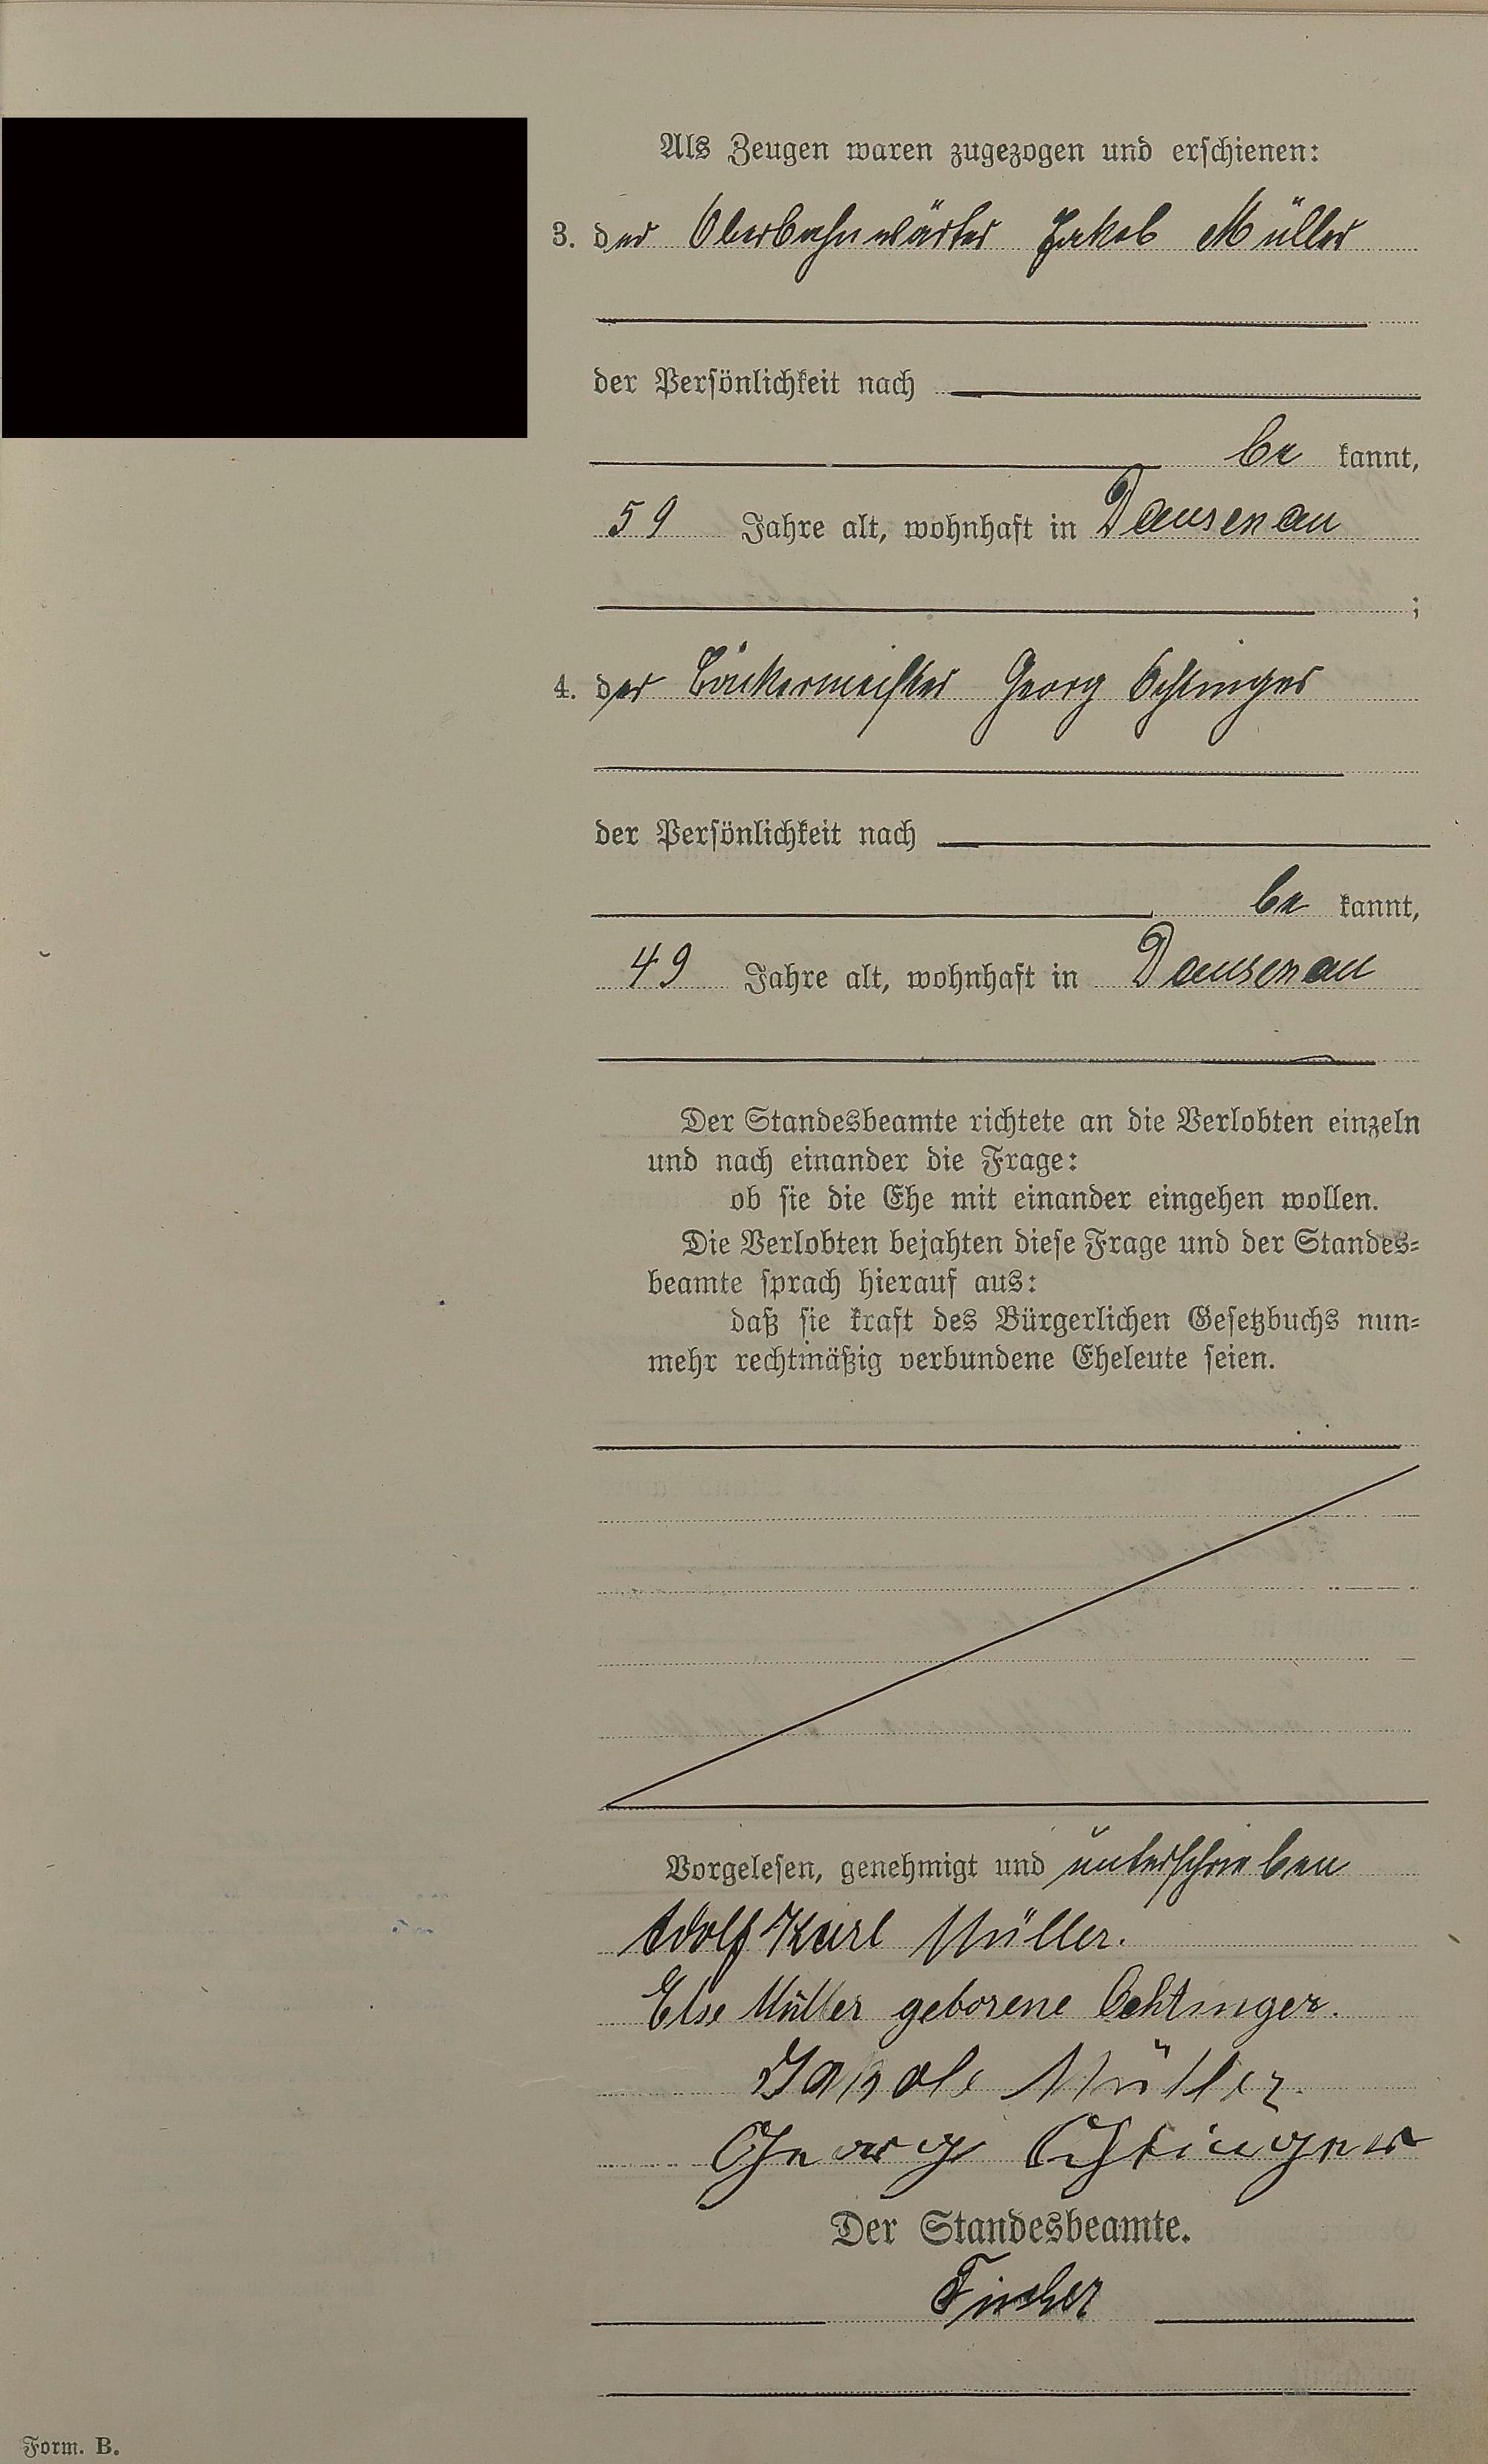 Als Zeugen waren zugezogen und erschienen:
3. der Oberbahnwärter Jakob Müller
der Persönlichkeit nach
be kannt,
59 Jahre alt, wohnhaft in Dausenau
;
4. der Bäckermeister Georg Ochtinger
der Persönlichkeit nach
be kannt,
49 Jahre alt, wohnhaft in Dausenau
Der Standesbeamte richtete an die Verlobten einzeln
und nach einander die Frage:
ob sie die Ehe mit einander eingehen wollen.
Die Verlobten bejahten diese Frage und der Standes=
beamte sprach hierauf aus:
daß sie kraft des Bürgerlichen Gesetzbuchs nun=
mehr rechtmäßig verbundene Eheleute seien.
Vorgelesen, genehmigt und unterschrieben
Adolf Karl Müller.
Else Müller geborene Ochtinger.
Jakob Müller.
Georg Ochtinger
Der Standesbeamte.
Form. B.